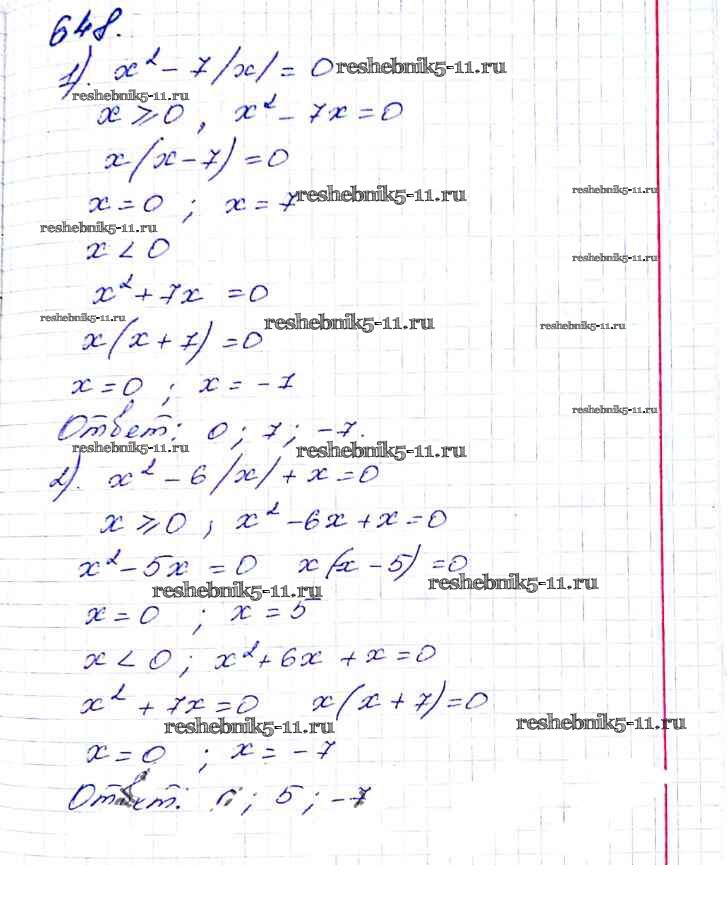 648.
1). x² - 7|x| = 0 reshebnik5-11.ru
reshebnik5-11.ru
x ⩾ 0, x² - 7x = 0
x(x - 7) = 0
x = 0 ; x = 7 reshebnik5-11.ru reshebnik5-11.ru
reshebnik5-11.ru
x < 0 reshebnik5-11.ru
x² + 7x = 0
reshebnik5-11.ru reshebnik5-11.ru reshebnik5-11.ru
x(x + 7) = 0
x = 0 ; x = -7
reshebnik5-11.ru
Ответ: 0 ; 7 ; -7.
reshebnik5-11.ru reshebnik5-11.ru
2). x² - 6|x| + x = 0
x ⩾ 0, x² - 6x + x = 0
x² - 5x = 0 x(x - 5) = 0
reshebnik5-11.ru reshebnik5-11.ru
x = 0 ; x = 5
x < 0 ; x² + 6x + x = 0
x² + 7x = 0 x(x + 7) = 0
reshebnik5-11.ru reshebnik5-11.ru
x = 0 ; x = -7
Ответ: ; 5 ; -7